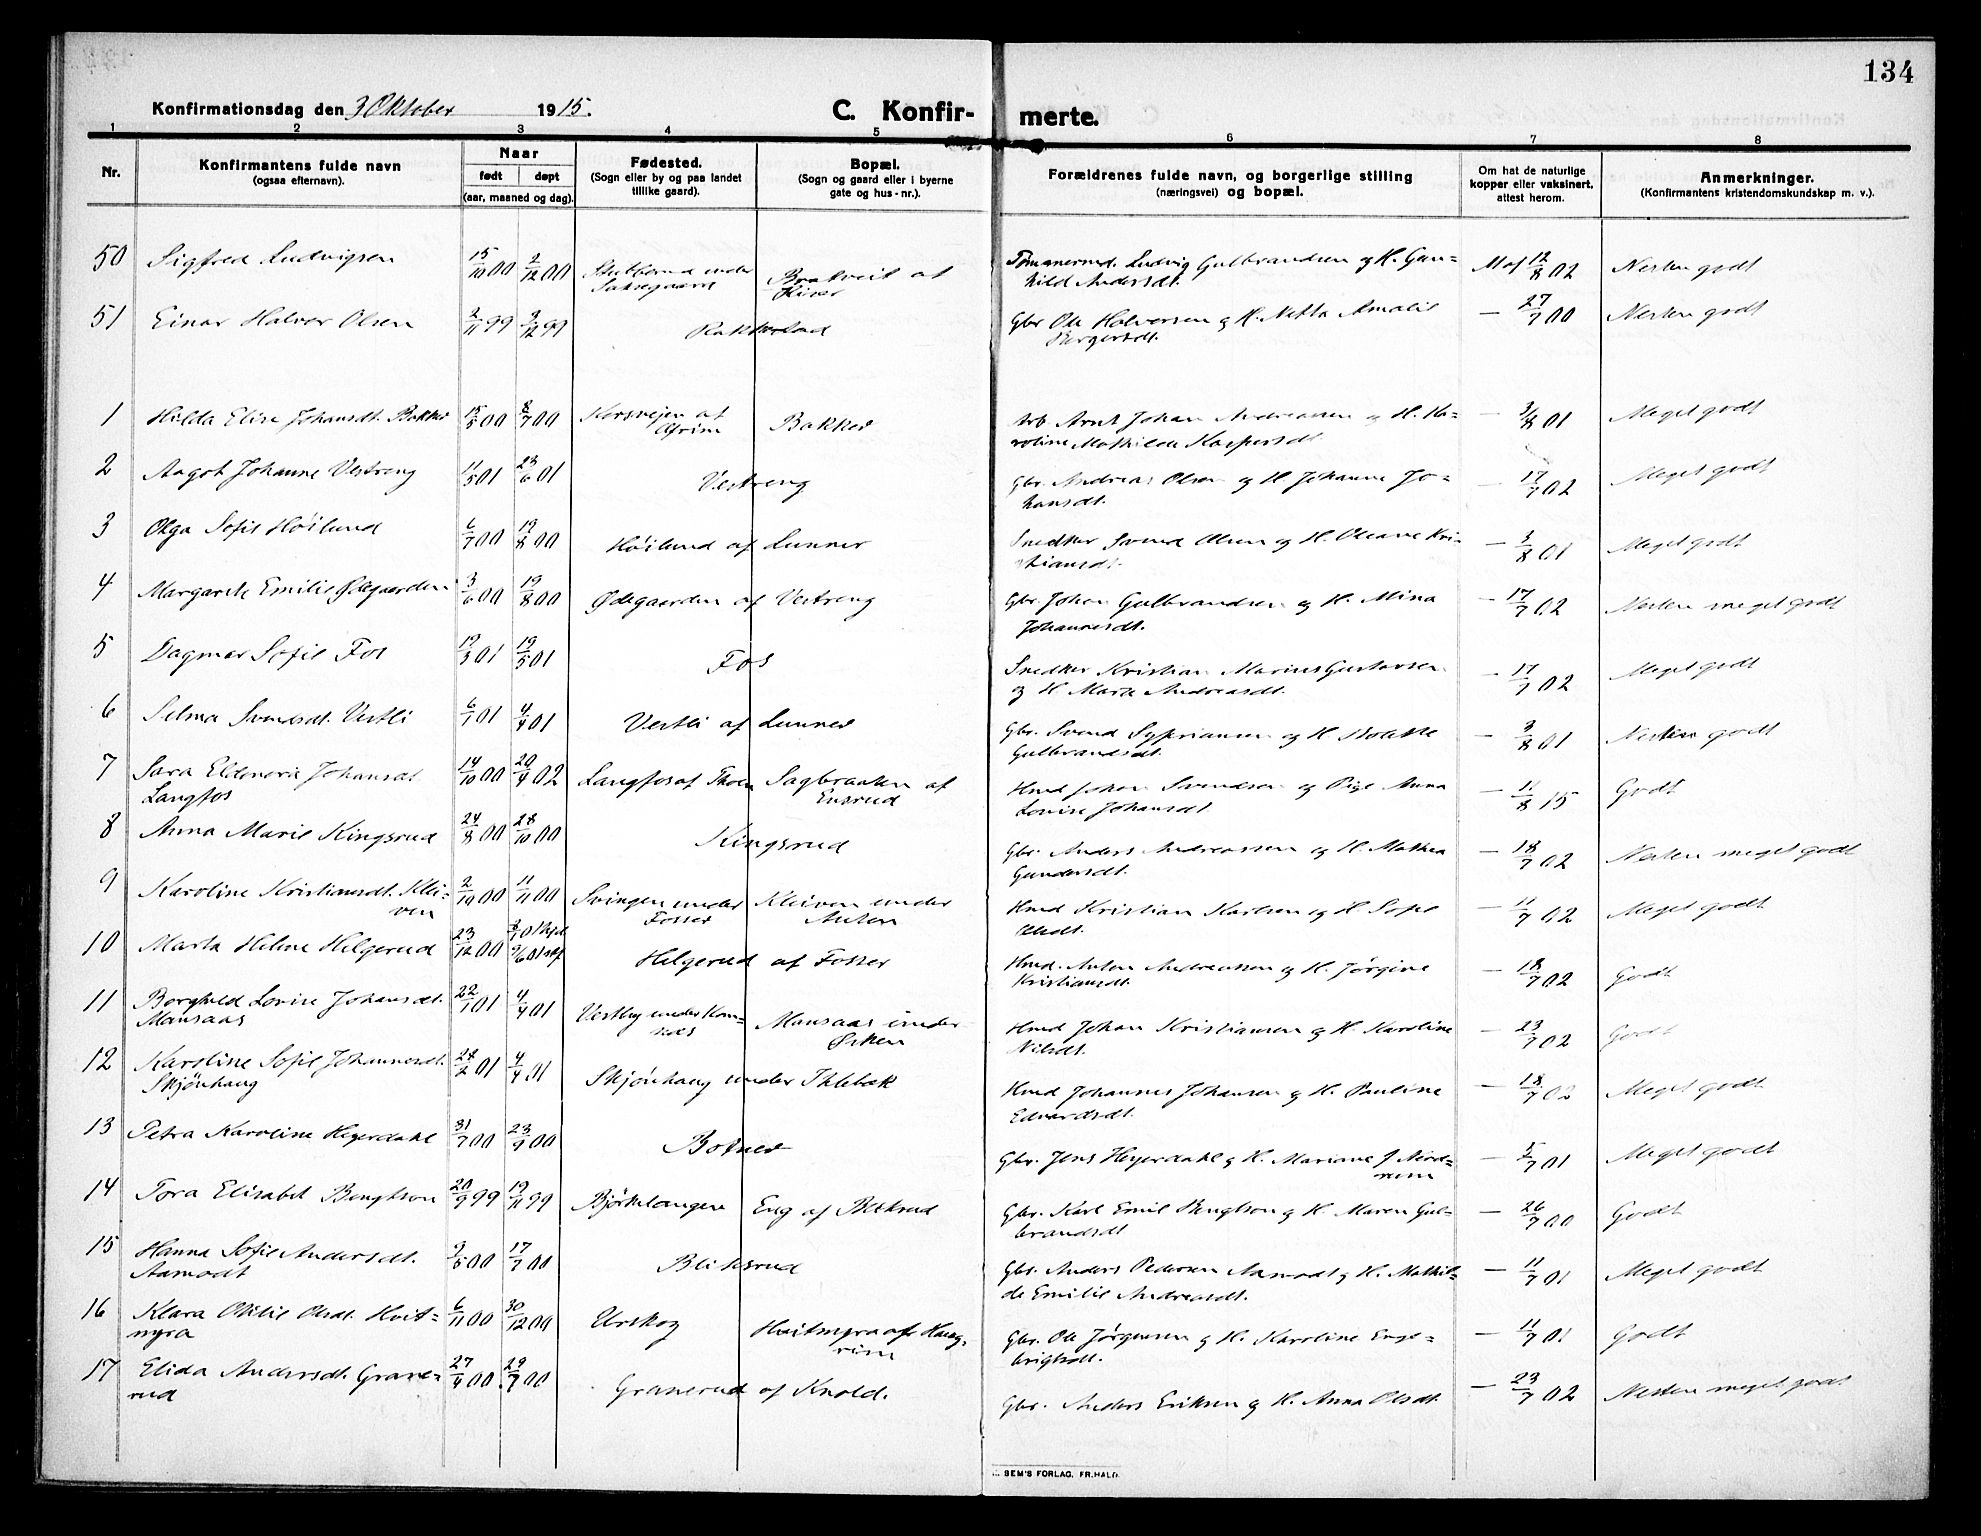 134
Konfirmationsdag den 3 Oktober 1915.
C. Konfir-
merte.
1 2 3 4 5 6 7 8
Nr.
Konfirmantens fulde navn
(ogsaa efternavn).
Naar
født døpt
(aar, maaned og dag).
Fødested.
(Sogn eller by og paa landet
tillike gaard).
Bopæl.
(Sogn og gaard eller i byerne
gate og hus-nr.).
Forældrenes fulde navn, og borgerlige stilling
(næringsvei) og bopæl.
Om hat de naturlige
kopper eller vaksinert,
attest herom.
Anmerkninger.
(Konfirmantens kristendomskundskap m. v.).
50 Sigfred Ludvigsen 15/10 00 2/12 00
Tømmermd. Ludvig Gulbrandsen og H. Gun-
hild Andersdt.
12/8 02 Nesten godt
51 Einar Halvor Olsen 2/11 99 3/12 99 Rakkestad
Gbr Ole Halvorsen og H. Netta Amalie
Bergersdt.
— 27/7 00 Nesten godt
1 Hilda Elise Johansdt. Bakker 15/5 00 8/7 00 Korsvejen af Bakker
Arb. Arnt Johan Andreassen og H. Ka-
roline Mathilde Kaspersdt.
— 3/8 01 Meget godt
2 Aagot Johanne Vestreng 11/5 01 23/6 01 Vestreng
Gbr. Andreas Olsen og H Johanne Jo-
hansdt.
— 17/7 02 Meget godt
3 Olga Sofie Høilund 6/7 00 19/8 00 Høilund af Lunner
Snedker Svend Olsen og H. Oleane Kri-
stiansdt.
— 3/8 01 Meget godt
4 Margarete Emilie Ødegaarden 3/6 00 19/8 00 Ødegaarden af Vestreng
Gbr. Johan Gulbrandsen og H. Mina
Johannesdt.
— 17/7 02 Nesten meget godt
5 Dagmar Sofie Fos 19/3 01 19/5 01 Fos
Snedker Kristian Marius Gustavsen
og H Marte Andreasdt.
— 17/7 02 Meget godt
6 Selma Svendsdt. Vestli 6/1 01 4/4 01 Vestli af Lunner
Gbr. Svend Sypriansen og H Bolette
Gulbrandsdt.
— 3/8 01 Nesten godt
7 Sara Eldenora Johansdt 14/10 00 20/4 02 Langfos af Thoen Sagbraaten af
Langfos Ensrud
Hmd Johan Svendsen og Pige Anna
Lovise Johansdt
— 11/8 15 Godt
8 Anna Marie Kingsrud 24/8 00 28/10 00 Kingsrud
Gbr. Anders Andreassen og H. Mathea
Gundersdt.
— 18/7 02 Nesten meget godt
9 Karoline Kristiansdt. Klei- 2/10 00 11/11 00 Svingen under Kleiven under
ven Fosser
Hmd Kristian Karlsen og H Sofie
Olsdt.
— 11/7 02 Meget godt
10 Marta Helene Helgerud 23/12 00 Helgerud af Fosser
Hmd. Anton Andreassen og H. Jørgine
Kristiansdt.
— 18/7 02 Godt
11 Borghild Lovise Johansdt. 22/1 01 4/4 01 Mansaas under
Mansaas
Hmd Johan Kristiansen og H. Karoline
Nilsdt.
— 23/7 02 Godt
12 Karoline Sofie Johannesdt. 28/2 01 4/4 01 Skjønhaug under Ihlebæk
Skjønhaug
Hmd Johannes Johansen og H. Pauline
Edvardsdt.
— 18/7 02 Meget godt
13 Petra Karoline Heyerdahl 31/7 00 23/9 00 Botner
Gbr. Jens Heyerdahl og H. Mariane f. Nord-
— 5/7 01 Meget godt
14 Tora Elisabet Bengtson 20/9 99 19/11 99 Bjørkelangen
Gbr. Karl Emil Bengtson og H. Maren Gul-
brandsdt
— 26/7 00 Godt
15 Hanna Sofie Andersdt. 3/5 00 17/7 01 Bliksrud
Aamodt
Gbr. Anders Pedersen Aamodt og H. Mathil-
de Emilie Andreasdt.
— 11/7 01 Meget godt
16 Klara Otilie Olsdt. Hvit- 6/11 00 30/12 00 Urskog Hvitmyra af Haneg-
myra
Gbr. Ole Jørgensen og H. Karoline Enge-
brigtsdt.
— 11/7 01 Godt
17 Elida Andersdt. Grane- 27/4 00 29/7 00 Granerud af Knold.
rud
Gbr. Anders Eriksen og H. Anna Olsdt.
— 23/7 02 Nesten meget godt
SEM'S FORLAG, FR.HALD.